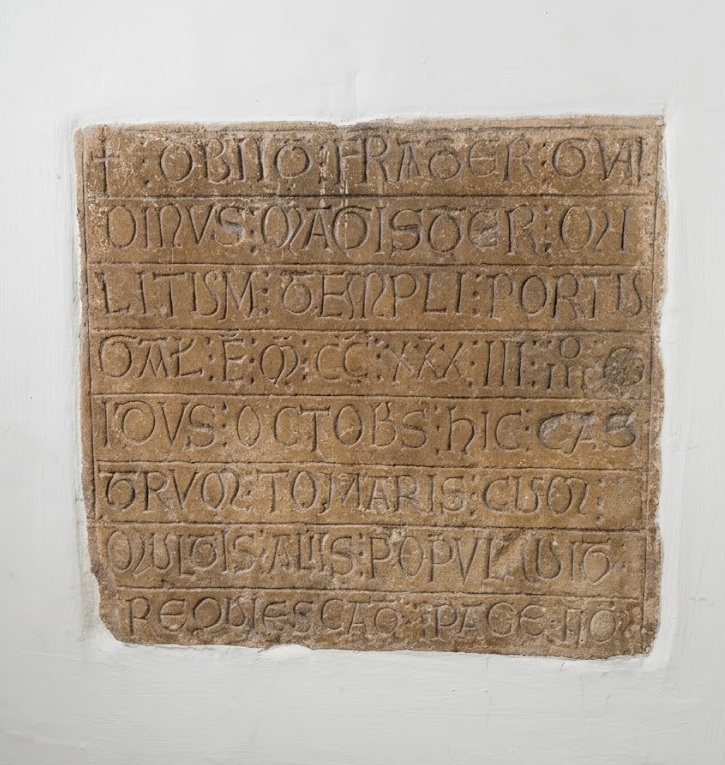 + : OBIIT : FRATER : GVAL
DINVS : MAGISTER : MI
LITUM : TEMPLI : PORTU
GAL : E : M : CC : XXX : III :
IDVS : OCTOBS : HIC : CAS
TRVM : TOMARIS : CUM :
MULTIS : ALIIS : POPVLAVIT
REQUIESCAT : PACE :